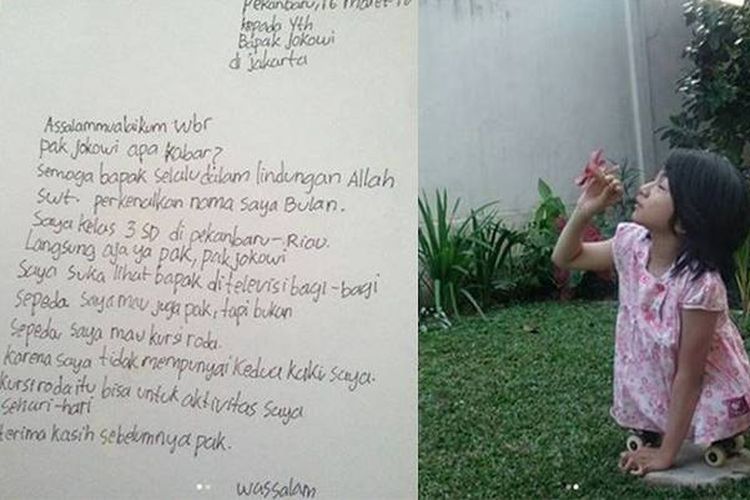 Pekanbaru, 16 Maret
kepada Yth
Bapak Jokowi
di Jakarta
Assalammualaikum Wbr
pak jokowi apa kabar?
semoga bapak selalu dalam lindungan Allah
swt. perkenalkan nama saya Bulan.
Saya kelas 3 SD di pekanbaru-Riau.
Langsung aja ya pak, pak jokowi
saya suka lihat bapak di televisi bagi-bagi
sepeda saya mau juga pak, tapi bukan
sepeda saya mau kursi roda.
karena saya tidak mempunyai kedua kaki saya.
kursi roda itu bisa untuk aktivitas saya
sehari-hari
terima kasih sebelumnya pak.
wassalam